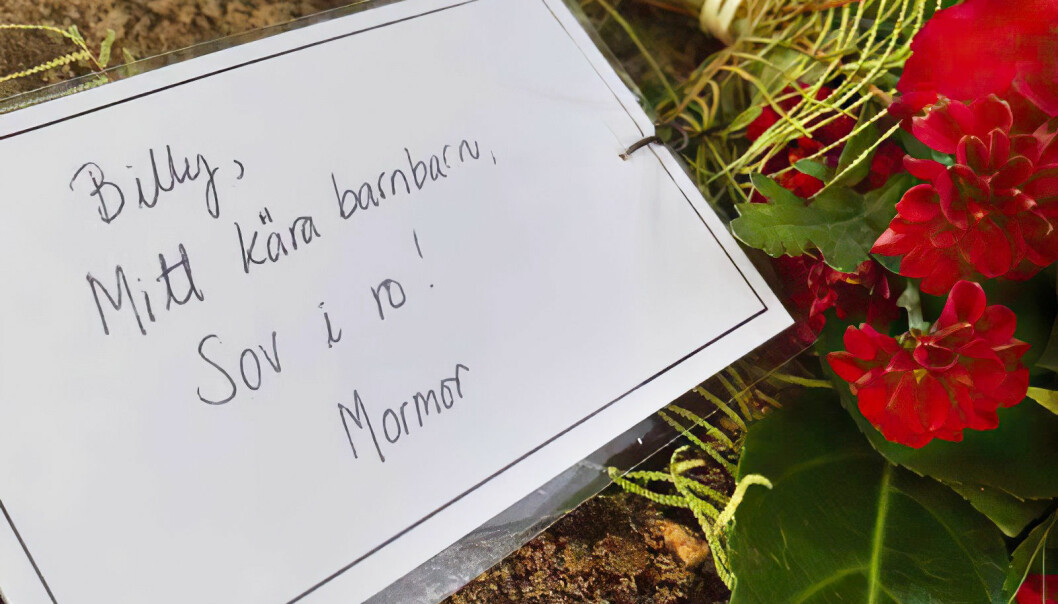 Billy,
Mitt kära barnbarn,
Sov i ro!
Mormor